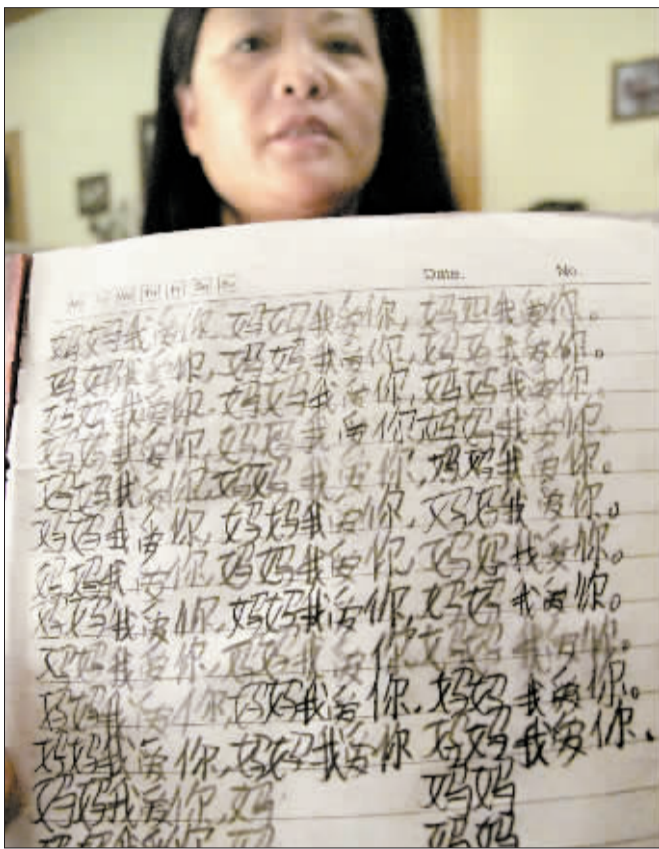 Date. No.
妈妈我爱你,妈妈我爱你,妈妈我爱你。
妈妈我爱你,妈妈我爱你,妈妈我爱你。
妈妈我爱你,妈妈我爱你,妈妈我爱你。
妈妈我爱你,妈妈我爱你妈妈我爱你。
妈妈我爱你,妈妈我爱你,妈妈我爱你。
妈妈我爱你,妈妈我爱你,妈妈我爱你。
妈妈我爱你,妈妈我爱你,妈妈我爱你。
妈妈我爱你,妈妈我爱你,妈妈我爱你。
妈妈我爱你,妈妈我爱你,妈妈我爱你。
妈妈我爱你妈妈我爱你,妈妈我爱你。
妈妈我爱你,妈妈我爱你 妈妈我爱你.
妈妈我爱你,妈 妈妈
妈妈我爱你 妈 妈妈